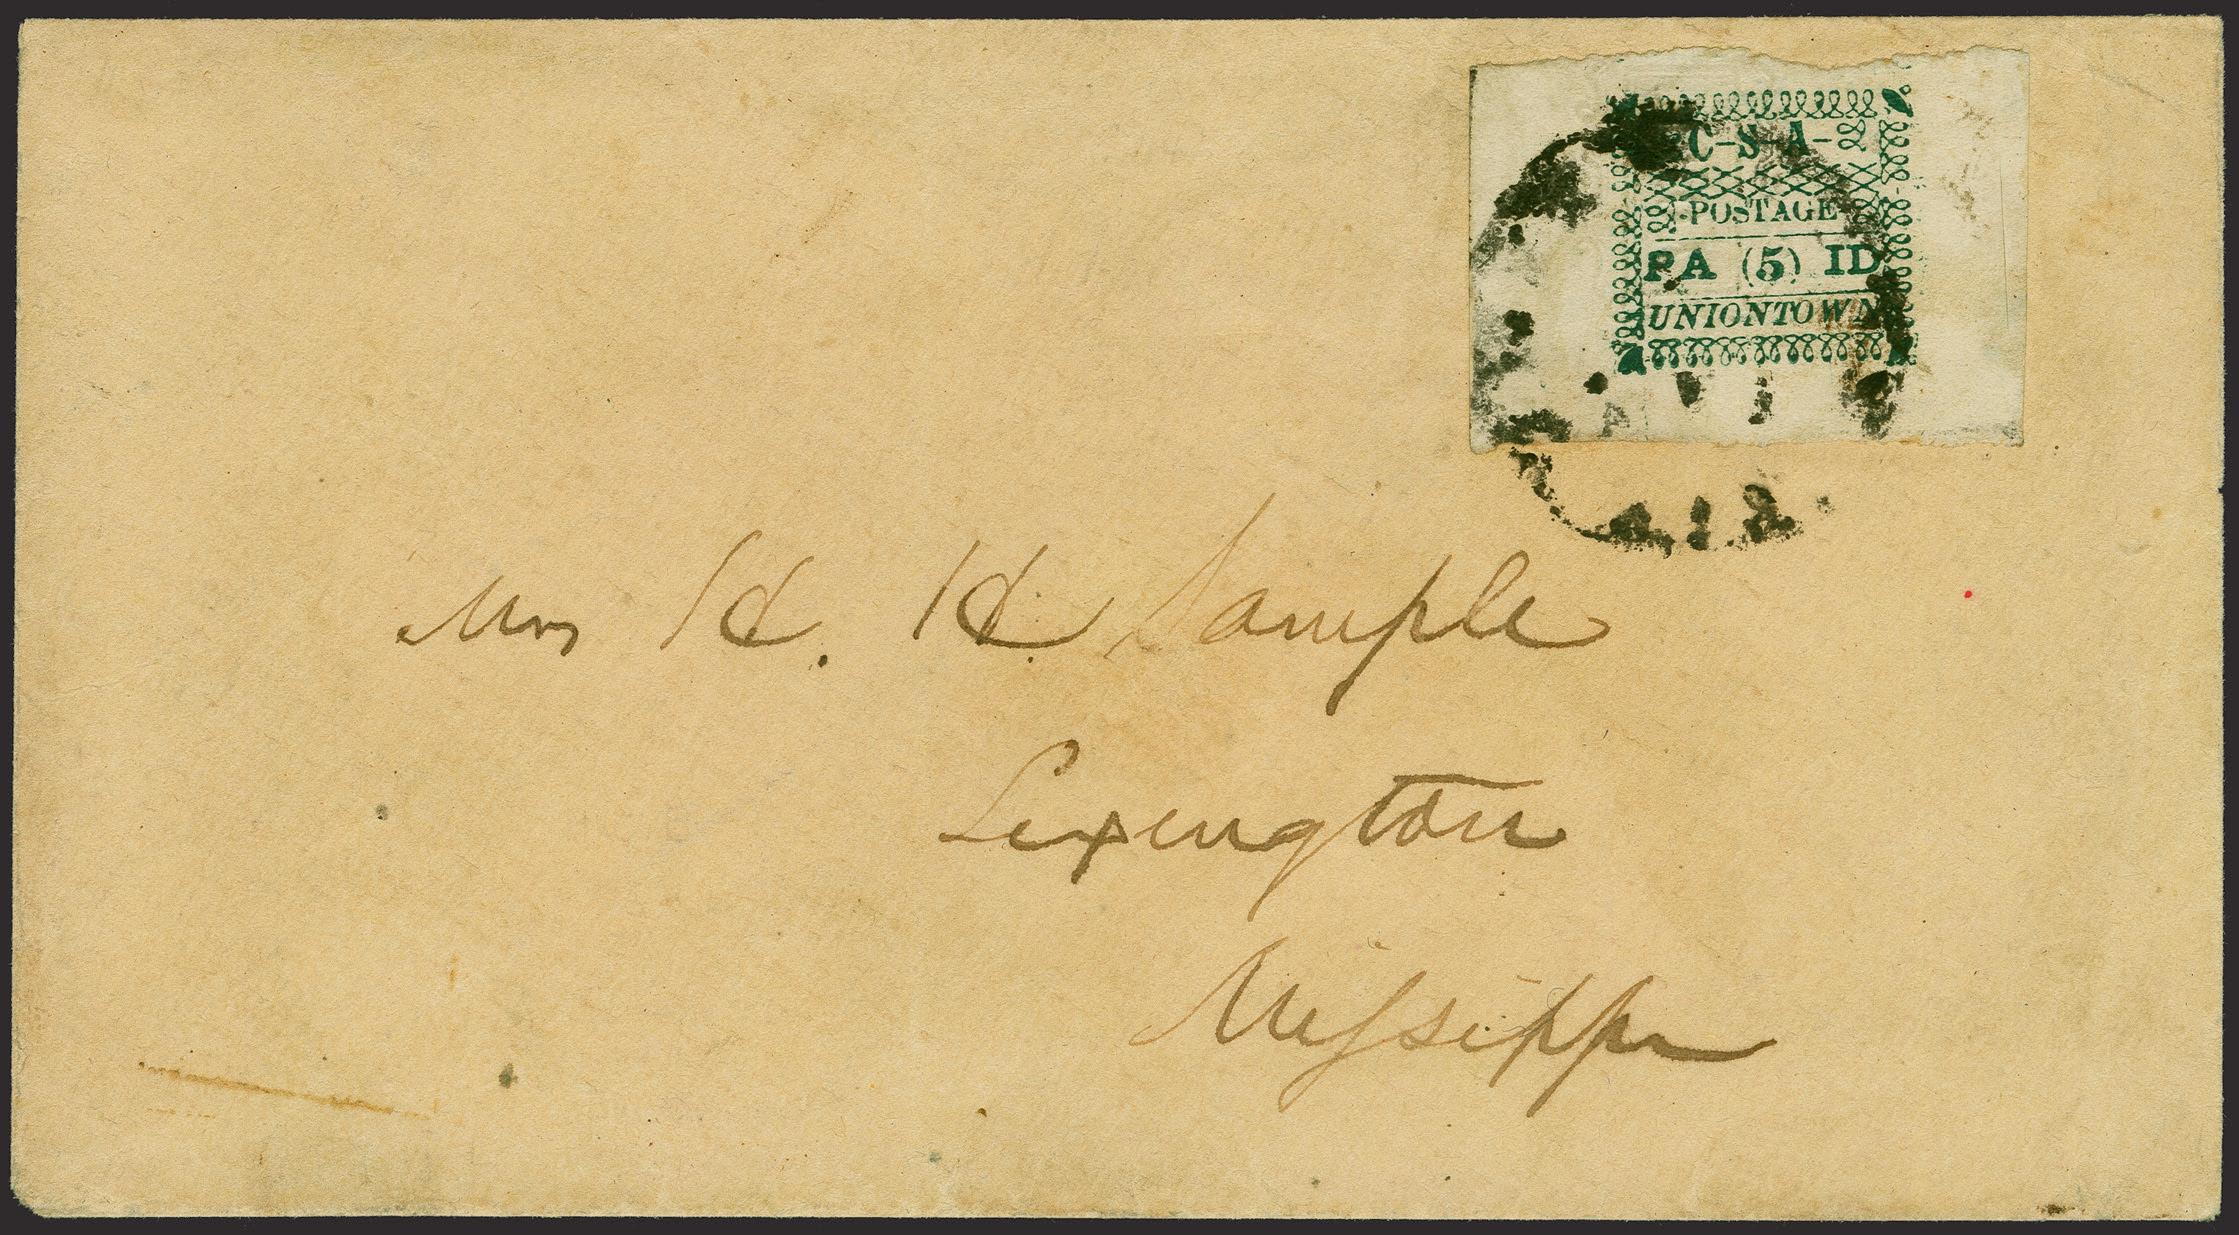 C-S-A-
POSTAGE
PA (5) ID
UNIONTOWN
Mrs H. H. Sample
Lexington
Missippi